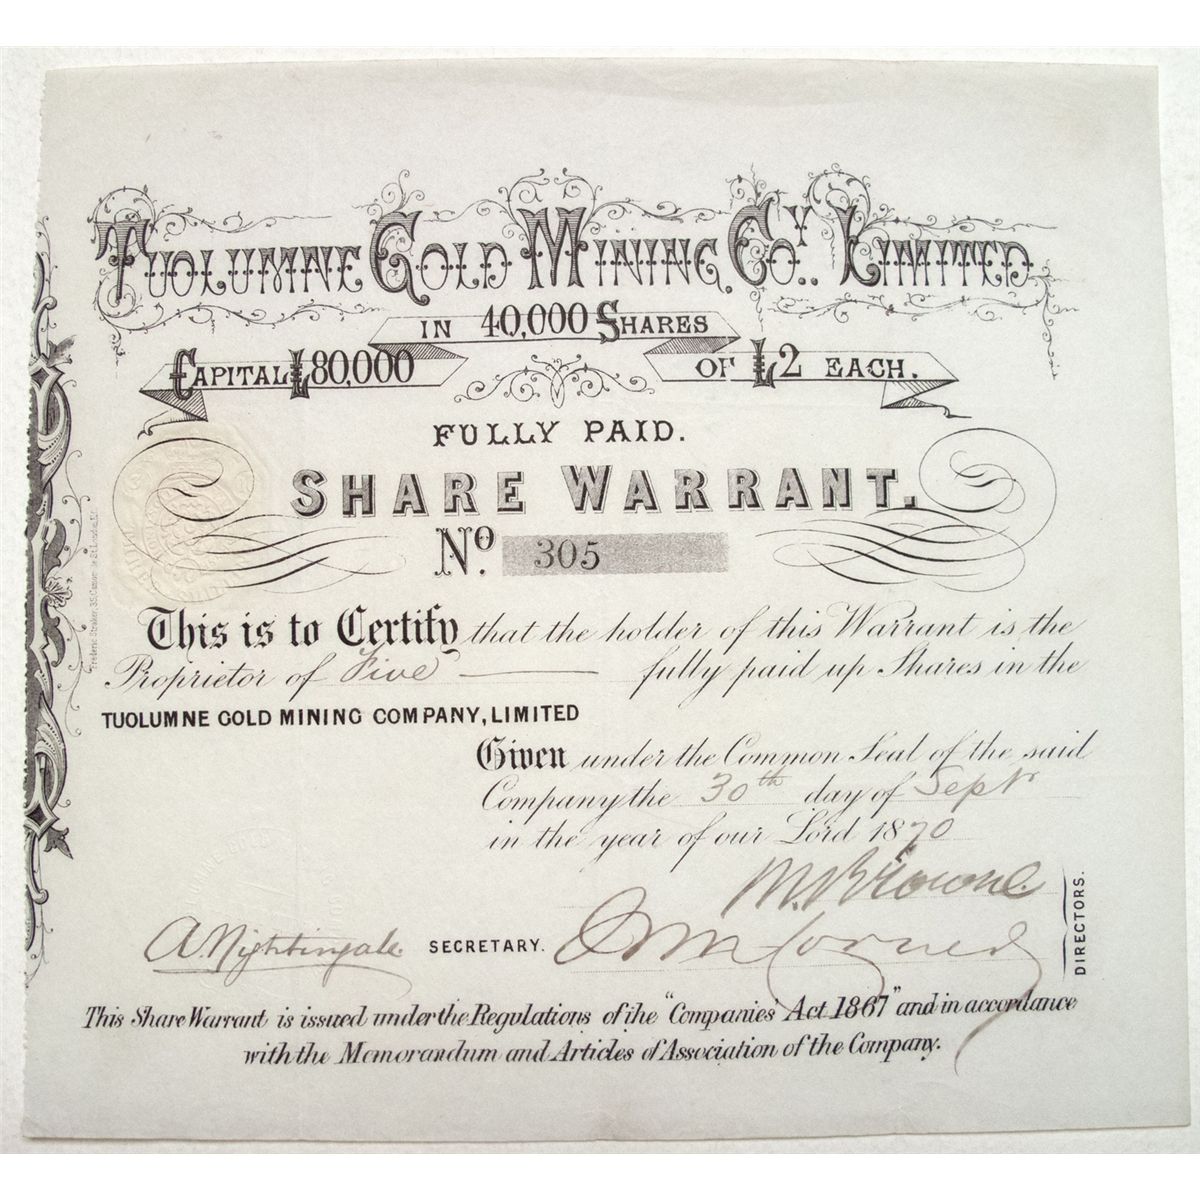 TUOLUMNE GOLD MINING COY. LIMITED
IN 40,000 SHARES
CAPITAL £80,000 OF £2 EACH.
FULLY PAID.
SHARE WARRANT.
No. 305
This is to Certify that the holder of this Warrant is the
Proprietor of Five fully paid up Shares in the
TUOLUMNE GOLD MINING COMPANY, LIMITED
Given under the Common Seal of the said
Company the 30th day of Septr
in the year of our Lord 1870
M. Browne
A. Nightingale SECRETARY.
DIRECTORS.
This Share Warrant is issued under the Regulations of the "Companies' Act 1867" and in accordance
with the Memorandum and Articles of Association of the Company.